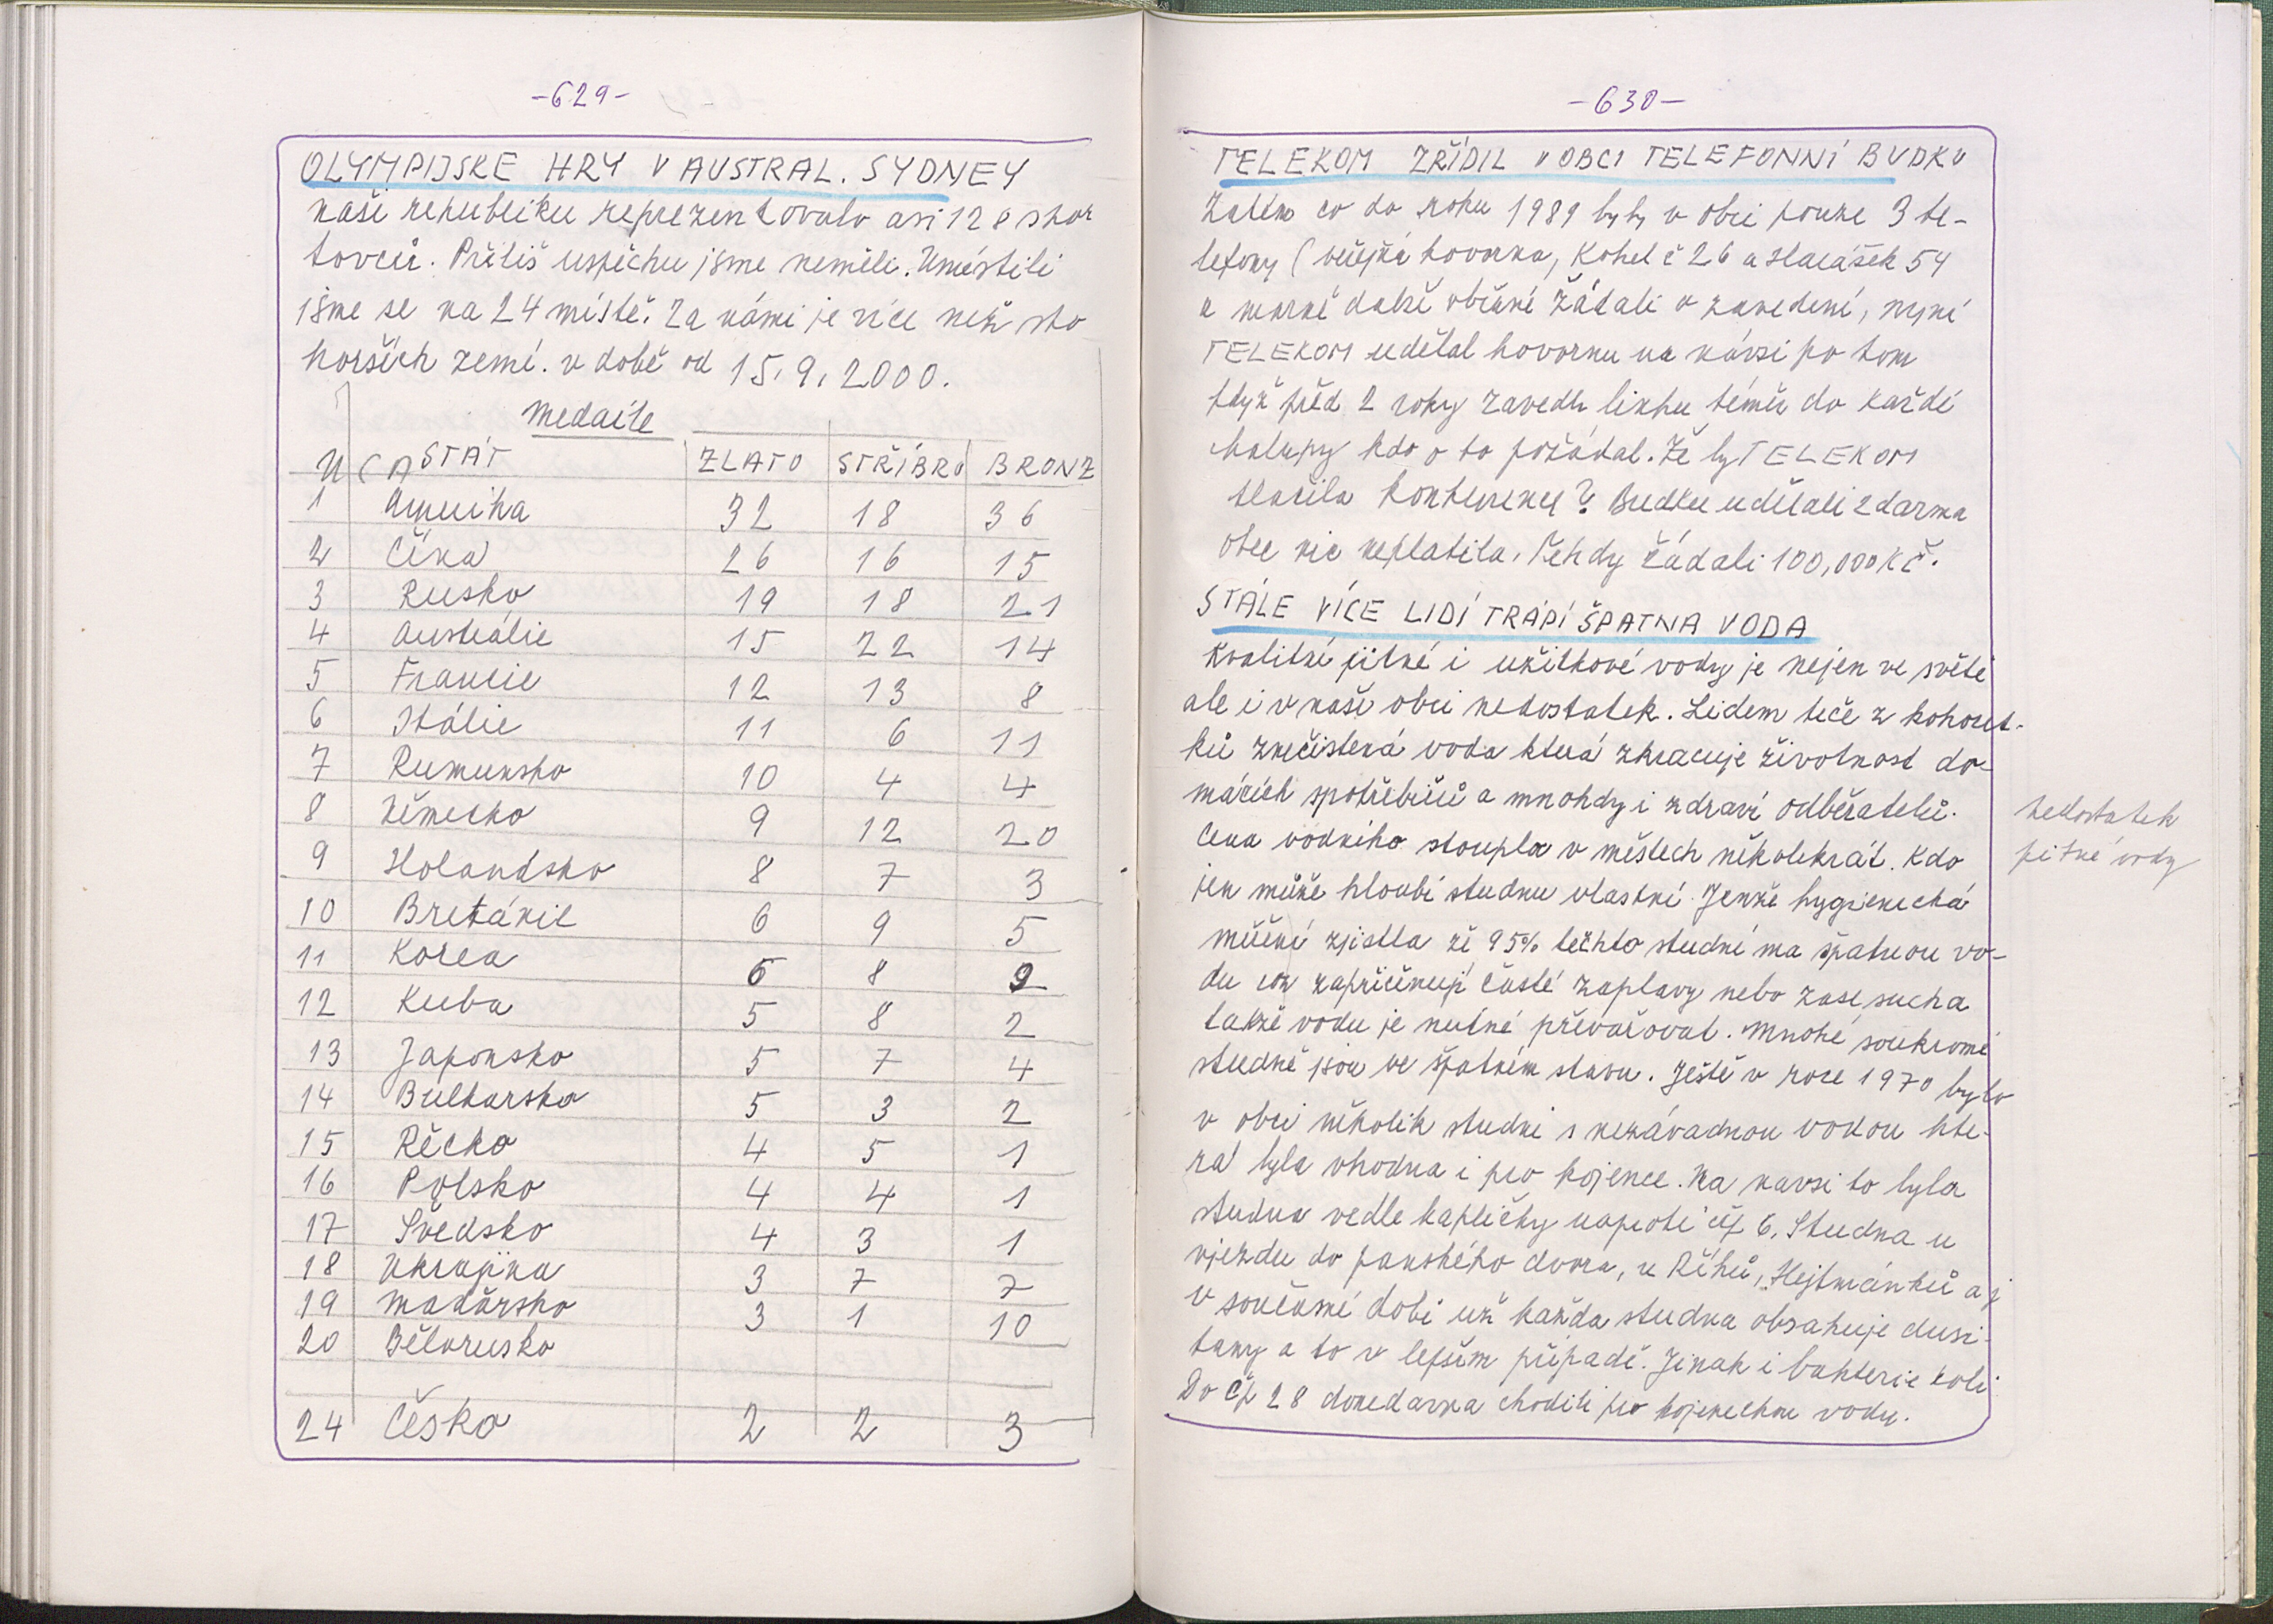 -629-
OLYMPIJSKE HRY V AUSTRAL. SYDNEY
naši republiku reprezentovalo asi 128 spor
tovců. Příliš uspěchu jsme neměli. Umístili
jsme se na 24 místě. Za námi je více než sto
horších zemí. v době od 15.9.2000.
Medaile
U ČA STÁT ZLATO STŘÍBRO BRONZ
1 Amerika 32 18 36
2 Čína 26 16 15
3 Rusko 19 18 21
4 Austrálie 15 22 14
5 Francie 12 13 8
6 Itálie 11 6 11
7 Rumunsko 10 4 4
8 Německo 9 12 20
9 Holandsko 8 7 3
10 Británie 6 9 5
11 Korea 6 8 9
12 Kuba 5 8 2
13 Japonsko 5 7 4
14 Bulharsko 5 3 2
15 Řěcko 4 5 1
16 Polsko 4 4 1
17 Švedsko 4 3 1
18 Ukrajina 3 7 7
19 Maďarsko 3 1 10
20 Bělorusko
24 Česko 2 2 3
-630-
TELEKOM ZŘÍDIL V OBCI TELEFONNÍ BUDKU
Zatím co do roku 1989 byly v obci pouze 3 te-
lefony (veřejná hovorna, Kohel č 26 a Hlaváček 54
a marně další občané žádali o zavedení, nyní
TELEKOM udělal hovornu na návsi po tom
když před 2 roky zavedli linku téměř do každé
chalupy kdo o to požádal. Že by TELEKOM
tlačila konkurence? Budku udělali zdarma
obec nic neplatila. Tehdy žádali 100,000 Kč.
STÁLE VÍCE LIDÍ TRÁPÍ ŠPATNA VODA
Kvalitní pitné i užitkové vody je nejen ve světě
ale i v naší obci nedostatek. Lidem teče z kohout-
ků znečistená voda která zkracuje životnost do-
mácích spotřebičů a mnohdy i zdraví odběratelů.
Cena vodného stoupla v městech několikrát. Kdo
jen může hloubí studnu vlastní. Jenže hygienická
měření zjistla že 95% těchto studní ma špatnou vo-
du což zapříčiňují časté zaplavy nebo zase sucha
takže vodu je nutné převařovat. Mnohé soukromé
studně jsou ve špatném stavu. Ještě v roce 1970 bylo
v obci několik studní s nezávadnou vodou kte-
rá byla vhodna i pro kojence. Na navsi to byla
studna vedle kapličky naproti čp 6. Studna u
vjezdu do panského dvora, u Říhů, Hejtmánků aj
v součásné dobi už každa studna obsahuje dusi-
tany a to v lepším případě. Jinak i bakterie koli
Do čp 28 donedavna chodili pro kojeneckou vodu.
nedostatek
pitné vody